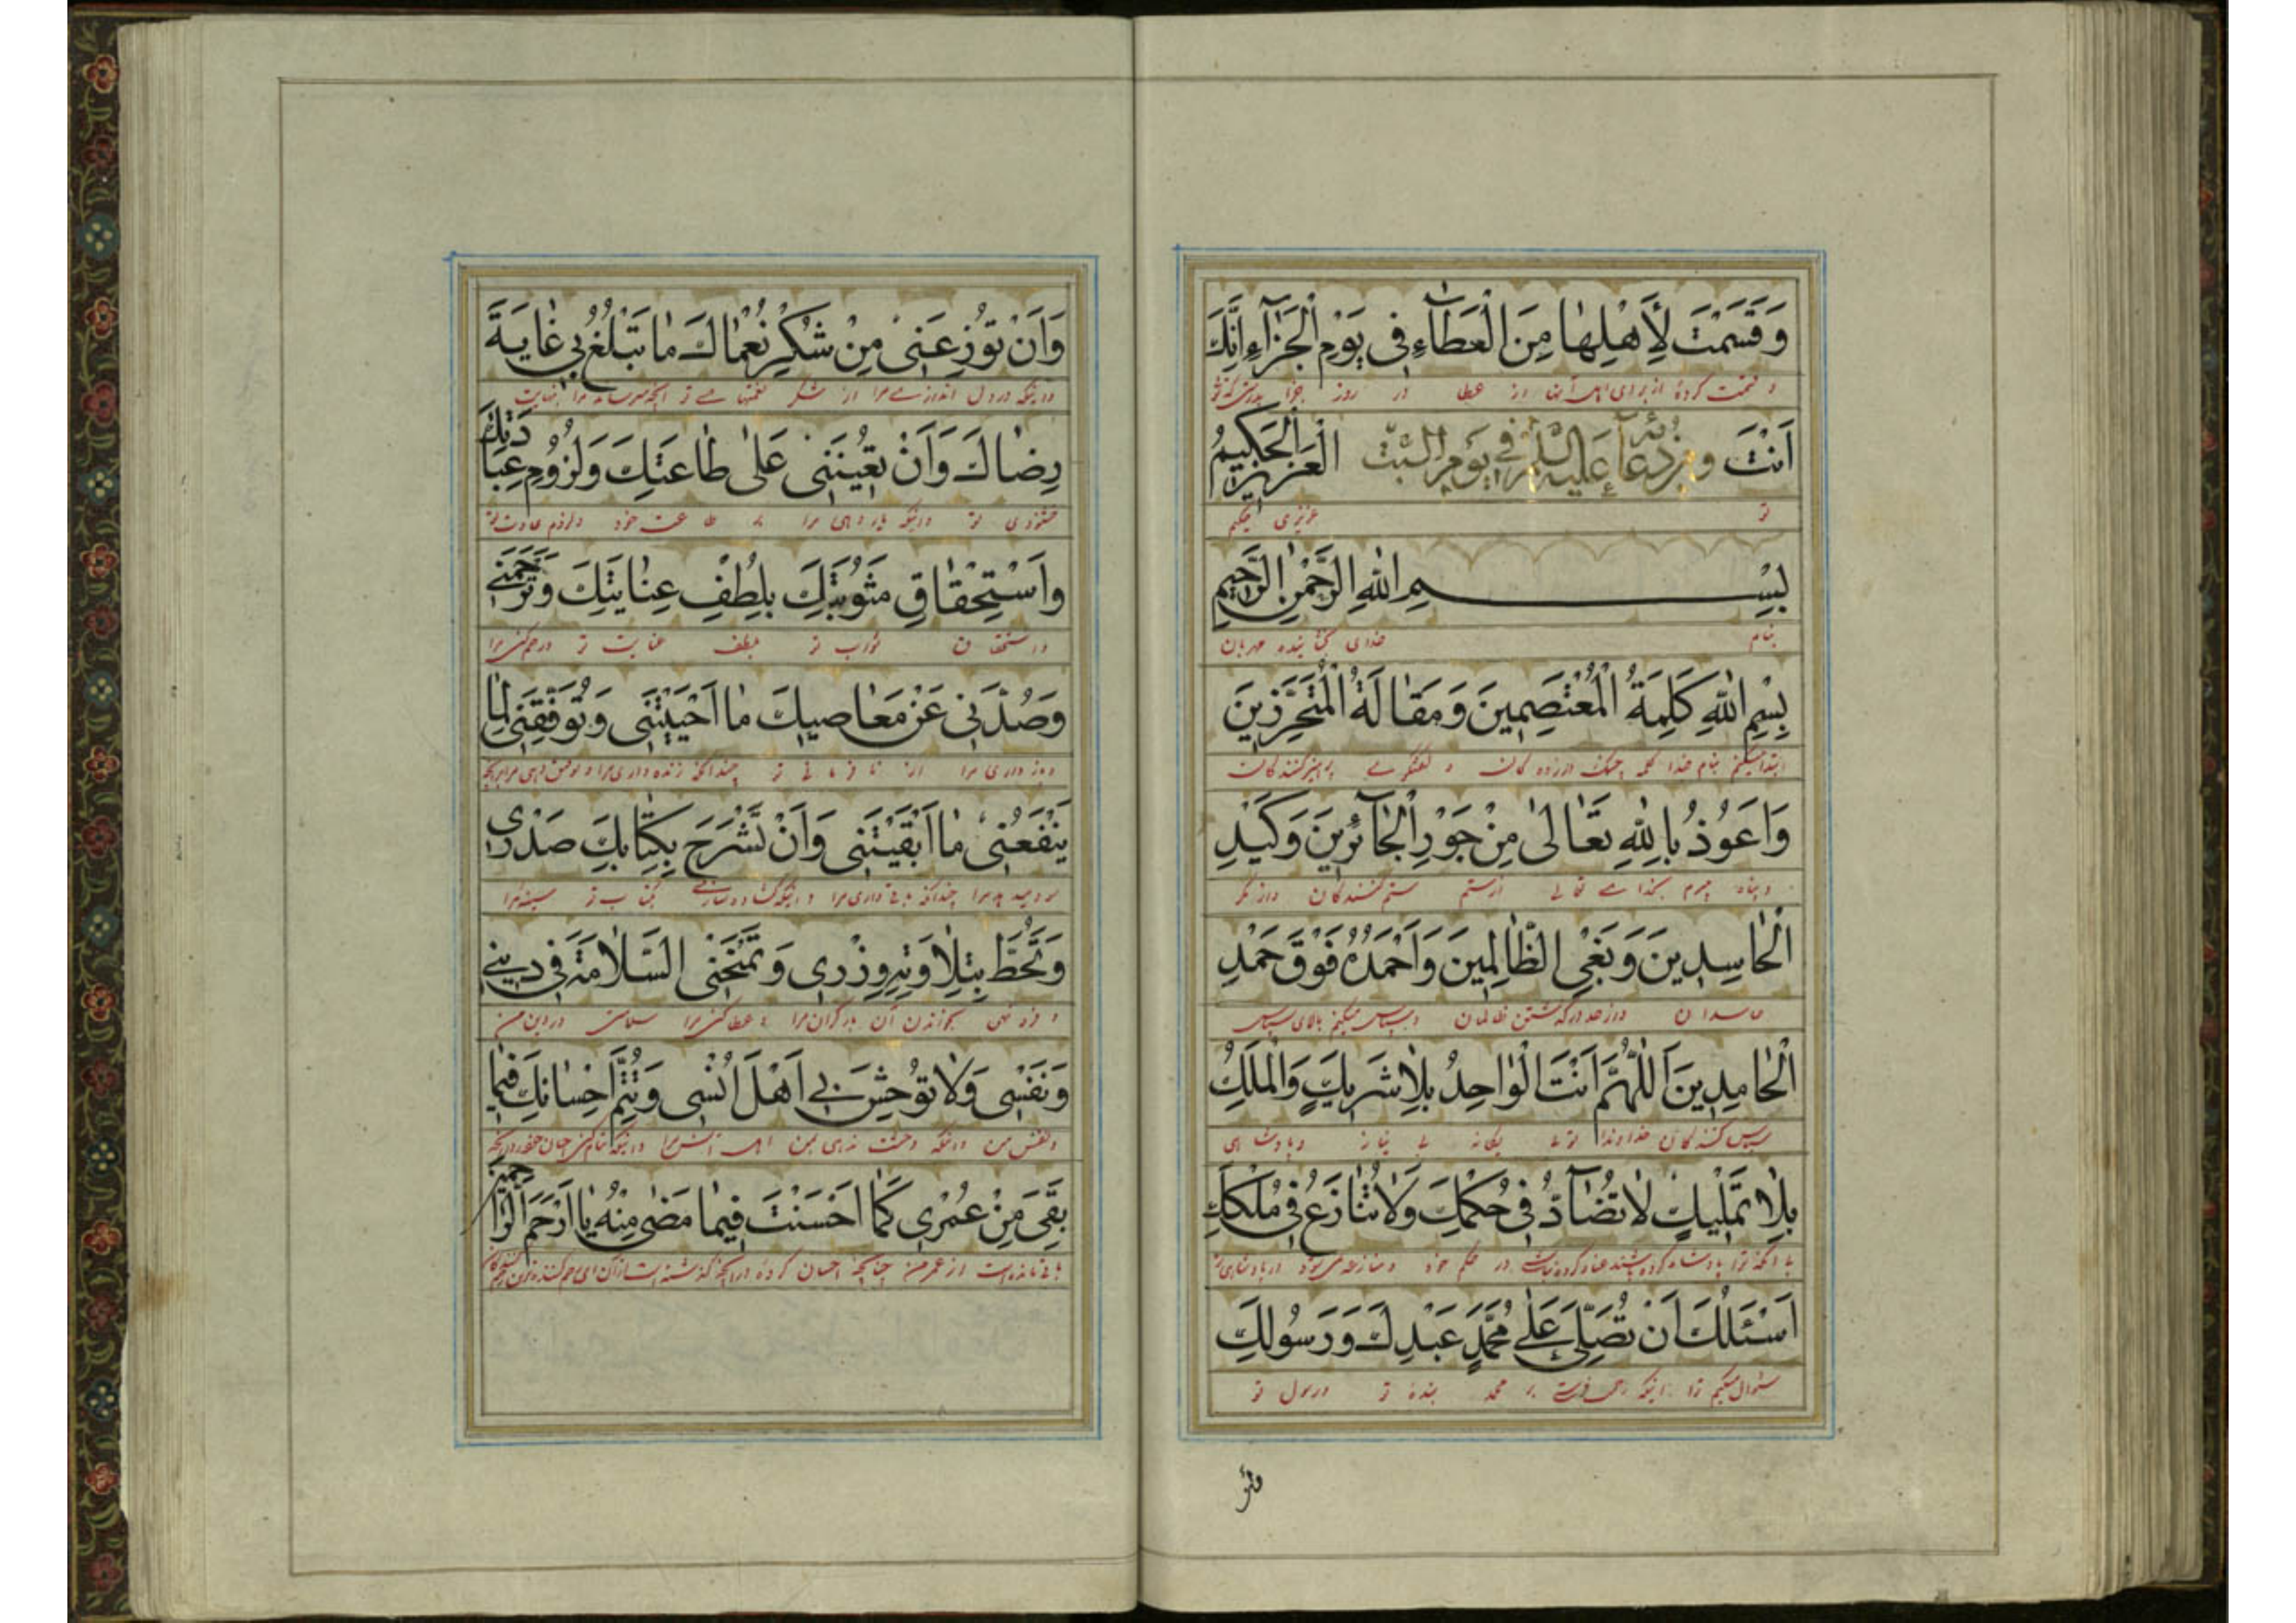 وَقَسَمْتَ لِأَهْلِهٰا مِنَ الْعَطَآءِ فی یَوْمِ الْجَزٰآءِ اِنَّكَ
و قسمت کردهٔ از برای اهل آنها از عطا در روز جزا بدرستی که تو
اَنْتَ الْعَزیزُ الْحَكیمُ
دعآء علیه السّلام فی یوم السّبت
تو عزیزی حکیم
بِسْمِ اللهِ الرَّحْمٰنِ الرَّحیمِ
بنام خدای بخشاینده مهربان
بِسْمِ اللهِ كَلِمَةُ الْمُعْتَصِمینَ وَمَقٰالَةُ الْمُتَحَرِّزینَ
ابتدا میکنم بنام خدا کلمه چنک درزده کان و پرهیزکنندکان
وَاَعُوذُ بِاللهِ تَعٰالىٰ مِنْ جَوْرِ الْجٰآئِرینَ وَكَیْدِ
و پناه میبرم بخدای تعالی از ستم ستم کنندکان و از مکر
الْحٰاسِدینَ وَبَغْىِ الظّٰالِمینَ وَاَحْمَدُهُ فَوْقَ حَمْدِ
حاسدان و از حد درگذشتن ظالمان و سپاس میکنم بالای سپاس
الْحٰامِدینَ اَللّٰهُمَّ اَنْتَ الْوٰاحِدُ بِلٰا شَریكٍ وَالْمَلِكُ
سپاس کنندکان خداوندا توئی یکانه و پادشاهی
بِلٰا تَمْلیكٍ لٰا تُضٰآدُّ فی حُكْمِكَ وَلٰا تُنٰازَعُ فی مُلْكِكَ
در حکم خود
اَسْئَلُكَ اَنْ تُصَلِّىَ عَلىٰ مُحَمَّدٍ عَبْدِكَ وَرَسُولِكَ
سئوال میکنم ترا اینکه رحمت فرستی بر محمد بندهٔ تو و رسول تو
وَاَنْ تُوزِعَنی مِنْ شُكْرِ نُعْمٰاكَ مٰا تَبْلُغُ بی غٰایَةَ
و اینکه در دل اندازی مرا از شکر نعمتهای تو آنچه میرساند مرا بنهایت
رِضٰاكَ وَاَنْ تُعینَنی عَلىٰ طٰاعَتِكَ وَلُزُومِ عِبٰادَتِكَ
خشنودی تو و اینکه یاری دهی مرا بر طاعت خود و لزوم عبادت تو
وَاسْتِحْقٰاقِ مَثُوبَتِكَ بِلُطْفِ عِنٰایَتِكَ وَتَرْحَمَنی
و استحقاق ثواب تو بلطف عنایت تو و رحم کنی مرا
وَصُدَّنی عَنْ مَعٰاصیكَ مٰا اَحْیَیْتَنی وَتُوَفِّقَنی لِمٰا
و بازداری مرا از نافرمانی تو چندانکه زنده داری مرا و توفیق دهی مرا برای آنچه
یَنْفَعُنی مٰا اَبْقَیْتَنی وَاَنْ تَشْرَحَ بِكِتٰابِكَ صَدْرى
چندانکه باقی داری مرا و اینکه گشاده سازی بکتاب تو سینه مرا
وَتَحُطَّ بِتِلٰاوَتِهِ وِزْرى وَتَمْنَحَنی السَّلٰامَةَ فی دینی
و فرو نهی بخواندن آن بار گران مرا و عطا کنی مرا سلامتی در دین من
وَنَفْسى وَلٰا تُوحِشَ بی اَهْلَ اُنْسى وَتُتِمَّ اِحْسٰانَكَ فیمٰا
و نفس من و اینکه وحشت ندهی بمن اهل انس مرا و اینکه تمام کنی احسان خود در آنچه
بَقِىَ مِنْ عُمْرى كَمٰا اَحْسَنْتَ فیمٰا مَضىٰ مِنْهُ یٰا اَرْحَمَ الرّٰاحِمینَ
باقی مانده است از عمر من چنانچه احسان کردهٔ در آنچه گذشته است از آن ای رحم کننده ترین رحم کنندکان